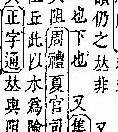 仍之非
也下也又集
阻周禮夏官司
丘此以水爲險
正字通與阻